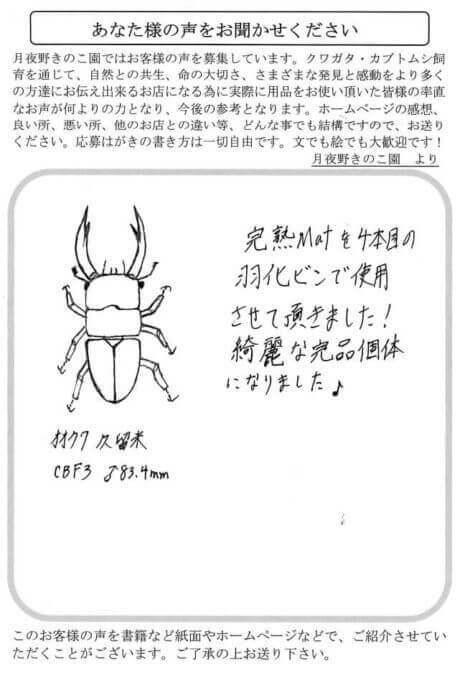 あなた様の声をお聞かせください
月夜野きのこ園ではお客様の声を募集しています。クワガタ・カブトムシ飼
育を通じて、自然との共生、命の大切さ、さまざまな発見と感動をより多く
の方達にお伝え出来るお店になる為に実際に用品をお使い頂いた皆様の率直
なお声が何よりの力となり、今後の参考となります。ホームページの感想、
良い所、悪い所、他のお店との違い等、どんな事でも結構ですので、お送り
ください。応募はがきの書き方は一切自由です。文でも絵でも大歓迎です！
月夜野きのこ園　より
完熟Matを4本目の
羽化ビンで使用
させて頂きました！
綺麗な完品個体
になりました♪
オオクワ 久留米
CBF3 ♂83.4mm
このお客様の声を書籍など紙面やホームページなどで、ご紹介させてい
ただくことがございます。ご了承の上お送り下さい。